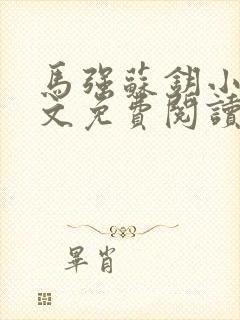 馬強蘇鈅小
文免費閱讀
畢肖